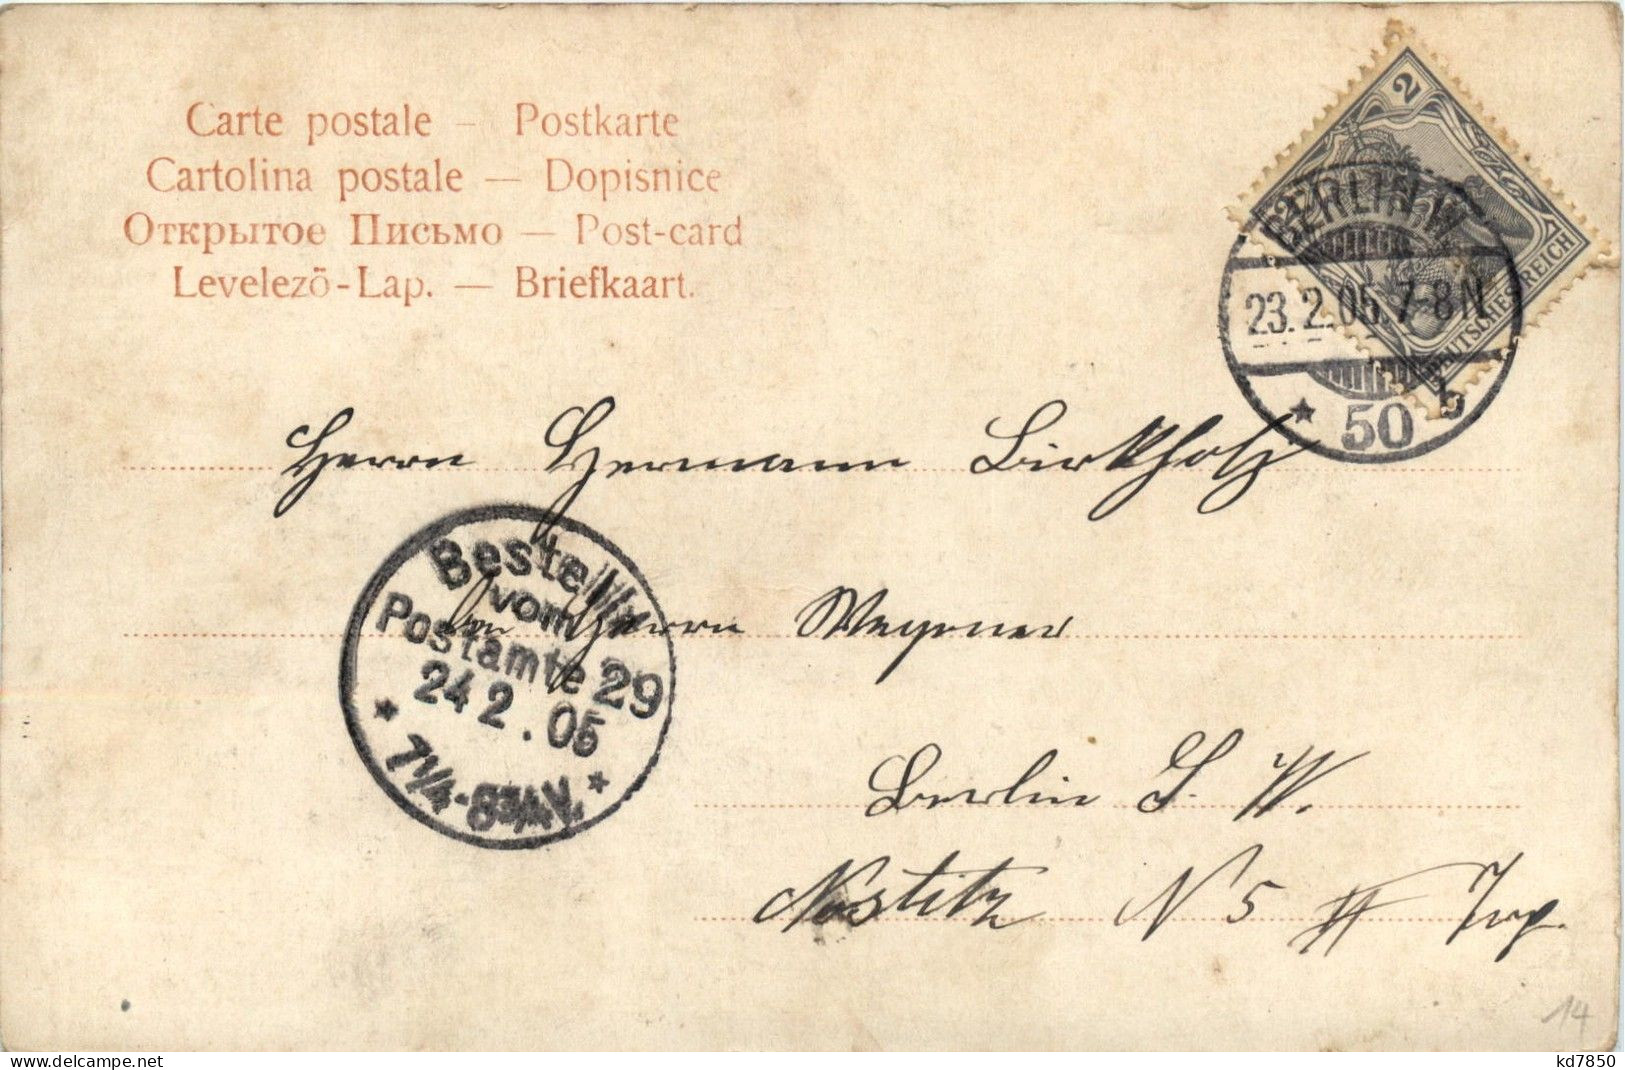 Carte postale – Postkarte
Cartolina postale — Dopisnice
Открытое Письмо — Post-card
Levelező-Lap. — Briefkaart.
2
DEUTSCHES REICH
BERLIN W
23.2.05. 7-8N
* 50 b
Herrn Hermann Birkholz
Bestellt
vom
Postamte 29
24 2. 05
* 7¼-8¾V. *
Herrn Wegener
Berlin S. W.
Nostitz N 5 II Trp.
14
www.delcampe.net
kd7850